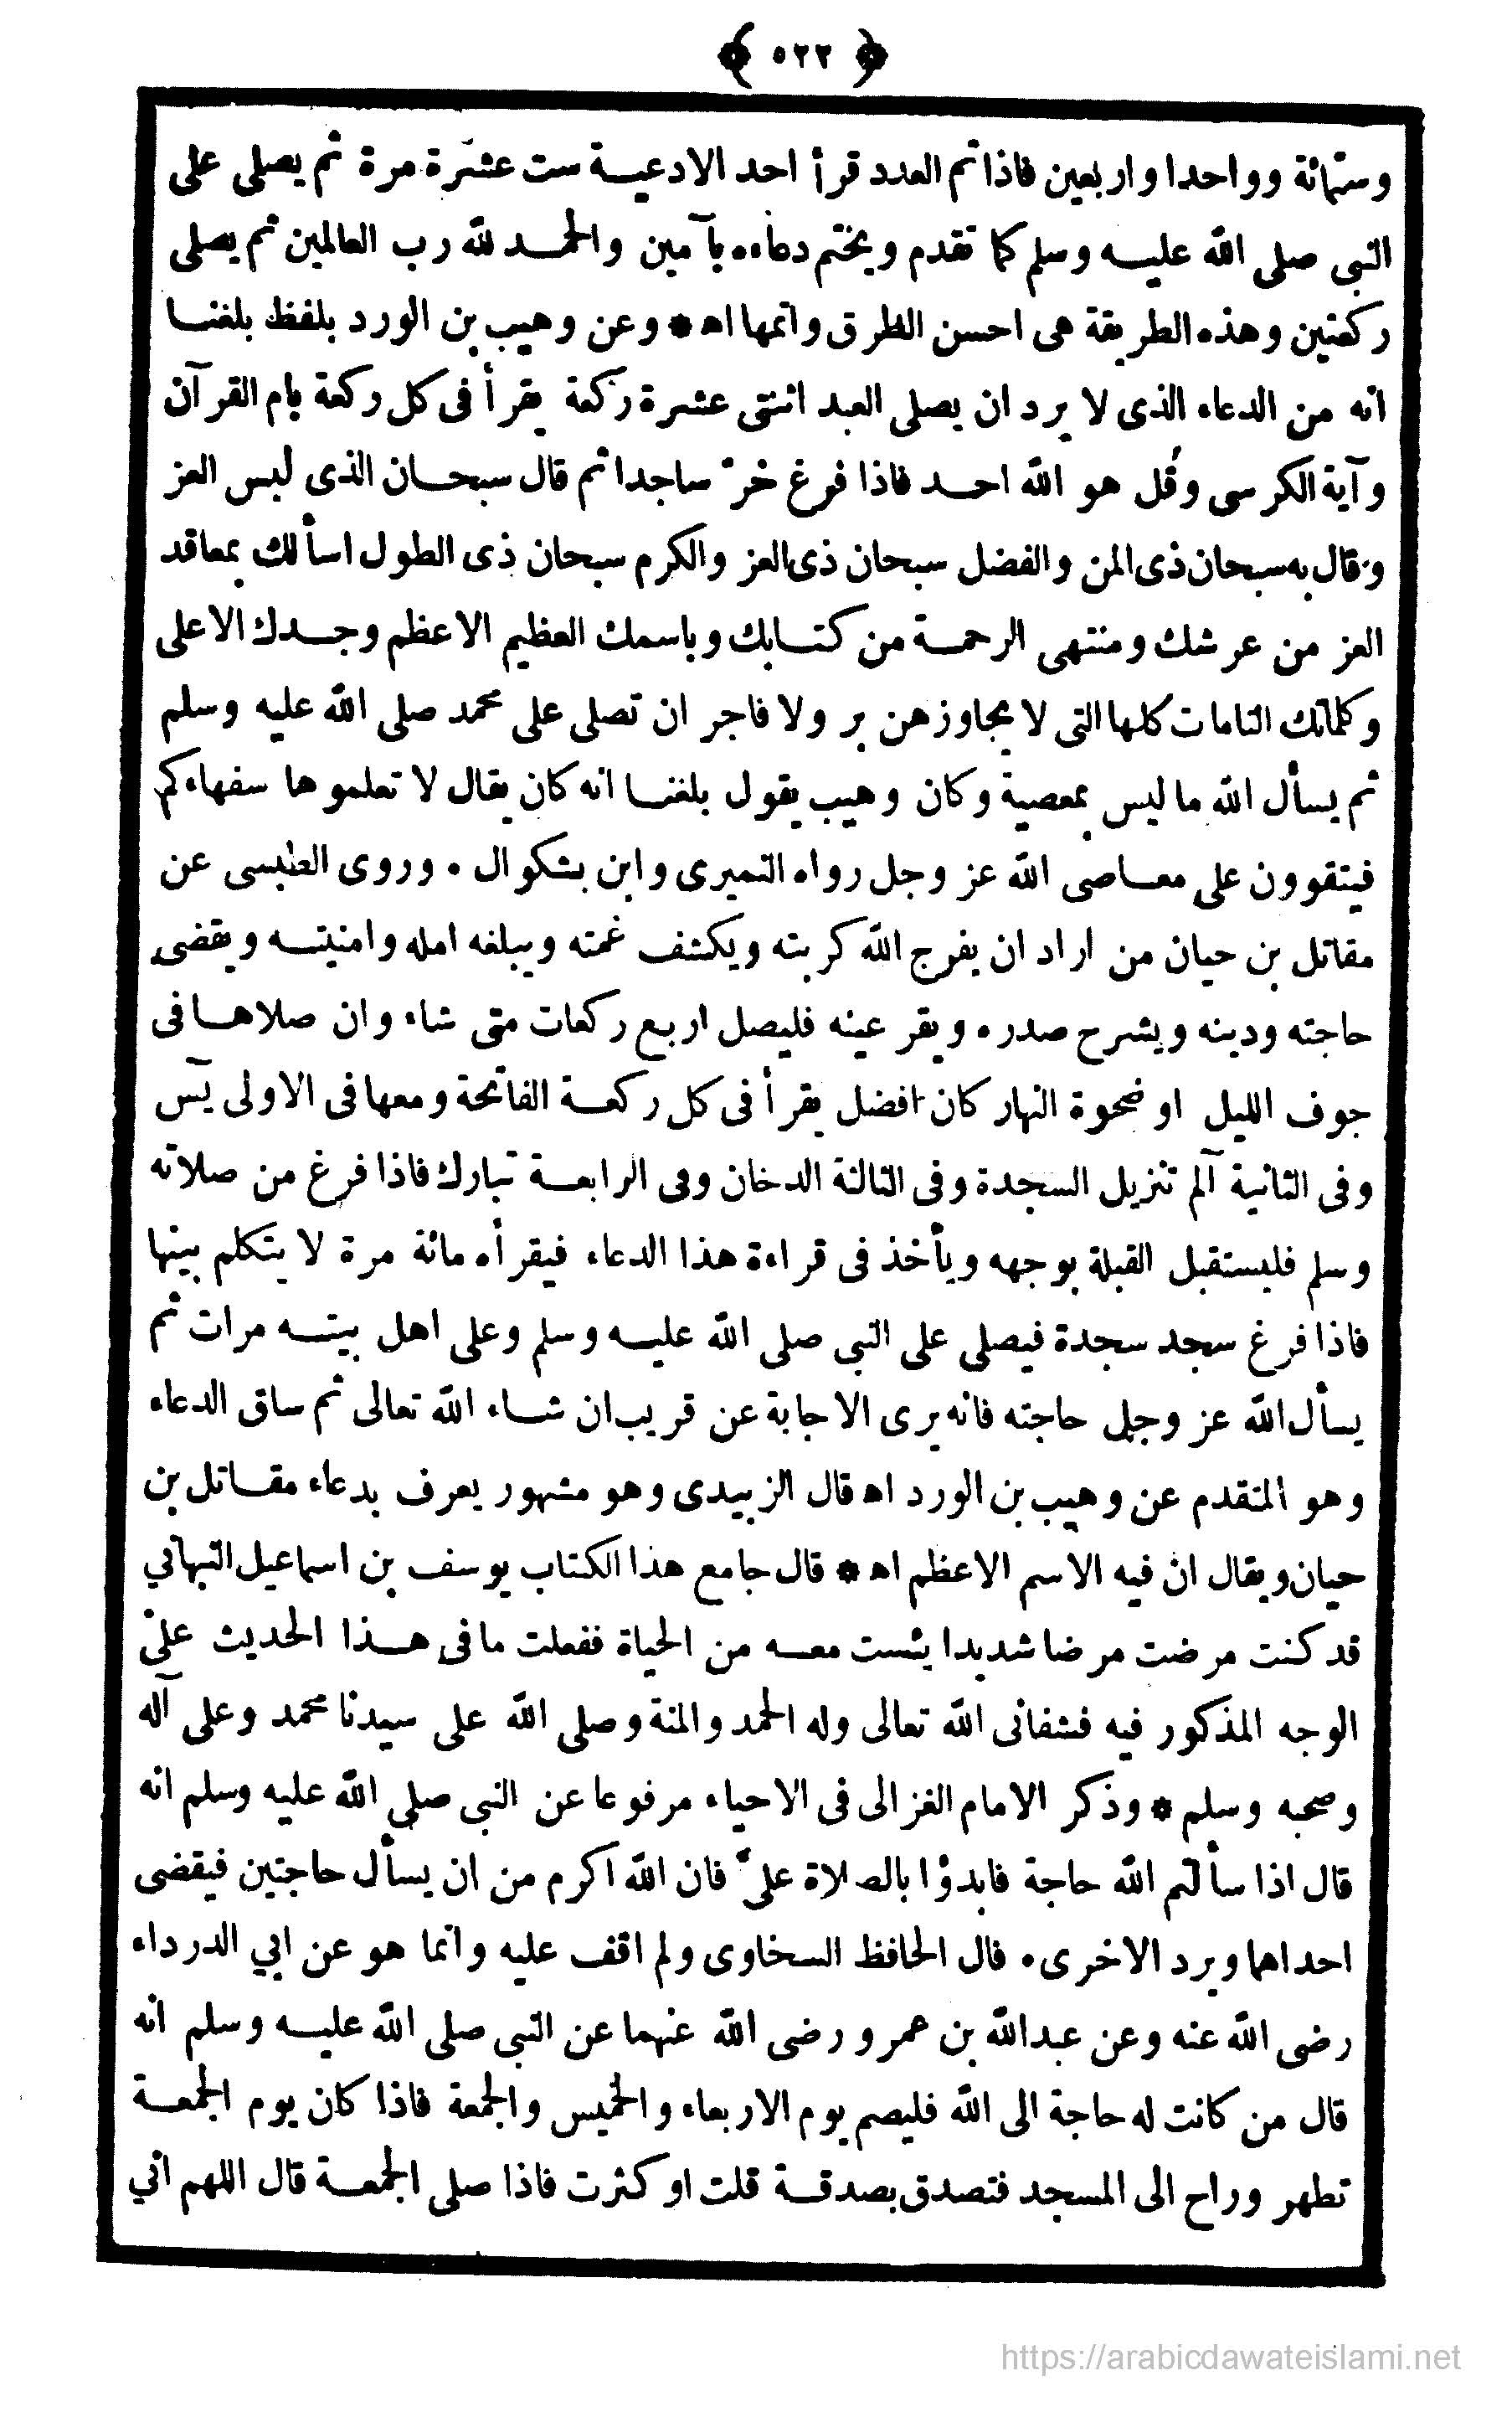 ﴿ ٥٢٢ ﴾
وستمائة وواحدا واربعين فاذا تم العدد قرأ احد الادعيـة ست عشرة مرة ثم يصلى على
النبى صلى الله عليـه وسلم كما تقدم ويختم دعاءه بآمين والحمـد لله رب العالمين ثم يصلى
ركعتين وهذه الطريقة هى احسن الطرق واتمها اه * وعن وهيب بن الورد بلفظ بلغنـا
انه من الدعاء الذى لا يرد ان يصلى العبد اثنتى عشرة ركعة يقرأ فى كل ركعة بام القرآن
وآية الكرسى وقُل هو الله احـد فاذا فرغ خرّ ساجدا ثم قال سبحـان الذى لبس العز
وقال به سبحان ذى المن والفضل سبحان ذى العز والكرم سبحان ذى الطول اسألك بمعاقد
العز من عرشك ومنتهى الرحمـة من كتـابك وباسمك العظيم الاعظم وجـدك الاعلى
وكلماتك التامات كلها التى لا يجاوزهن بر ولا فاجر ان تصلى على محمد صلى الله عليه وسلم
ثم يسأل الله ما ليس بمعصية وكان وهيب يقول بلغنـا انه كان يقال لا تعلموها سفهاءكم
فيتقوون على معـاصى الله عز وجل رواه النميرى وابن بشكوال • وروى الطبسى عن
مقاتل بن حيان من اراد ان يفرج الله كربته ويكشف غمته ويبلغه امله وامنيتـه ويقضى
حاجته ودينه ويشرح صدره ويقر عينه فليصل اربع ركعات متى شاء وان صلاهـا فى
جوف الليل او ضحوة النهار كان افضل يقرأ فى كل ركعـة الفاتحة ومعها فى الاولى يٓس
وفى الثانية آلم تنزيل السجدة وفى الثالثة الدخان وفى الرابعـة تبارك فاذا فرغ من صلاته
وسلم فليستقبل القبلة بوجهه ويأخذ فى قراءة هذا الدعاء فيقرأه مائة مرة لا يتكلم بينها
فاذا فرغ سجد سجدة فيصلى على النبى صلى الله عليـه وسلم وعلى اهل بيتـه مرات ثم
يسأل الله عز وجل حاجته فانه يرى الاجابة عن قريب ان شـاء الله تعالى ثم ساق الدعاء
وهو المتقدم عن وهيب بن الورد اه قال الزبيدى وهو مشهور يعرف بدعاء مقـاتل بن
حيان ويقال ان فيه الاسم الاعظم اه * قال جامع هذا الكتاب يوسف بن اسماعيل النبهاني
قد كنت مرضت مرضا شديدا يئست معـه من الحياة ففعلت ما فى هـذا الحديث على
الوجه المذكور فيه فشفانى الله تعالى وله الحمد والمنة وصلى الله على سيدنا محمد وعلى آله
وصحبه وسلم * وذكر الامام الغزالى فى الاحياء مرفوعا عن النبى صلى الله عليه وسلم انه
قال اذا سألتم الله حاجة فابدؤا بالصلاة علىّ فان الله اكرم من ان يسأل حاجتين فيقضى
احداهما ويرد الاخرى • قال الحافظ السخاوى ولم اقف عليه وانما هو عن ابي الدرداء
رضى الله عنه وعن عبدالله بن عمرو رضى الله عنهما عن النبى صلى الله عليـه وسلم انه
قال من كانت له حاجة الى الله فليصم يوم الاربعاء والخميس والجمعة فاذا كان يوم الجمعـة
تطهر وراح الى المسجد فتصدق بصدقـة قلت او كثرت فاذا صلى الجمعـة قال اللهم اني
https://arabicdawateislami.net